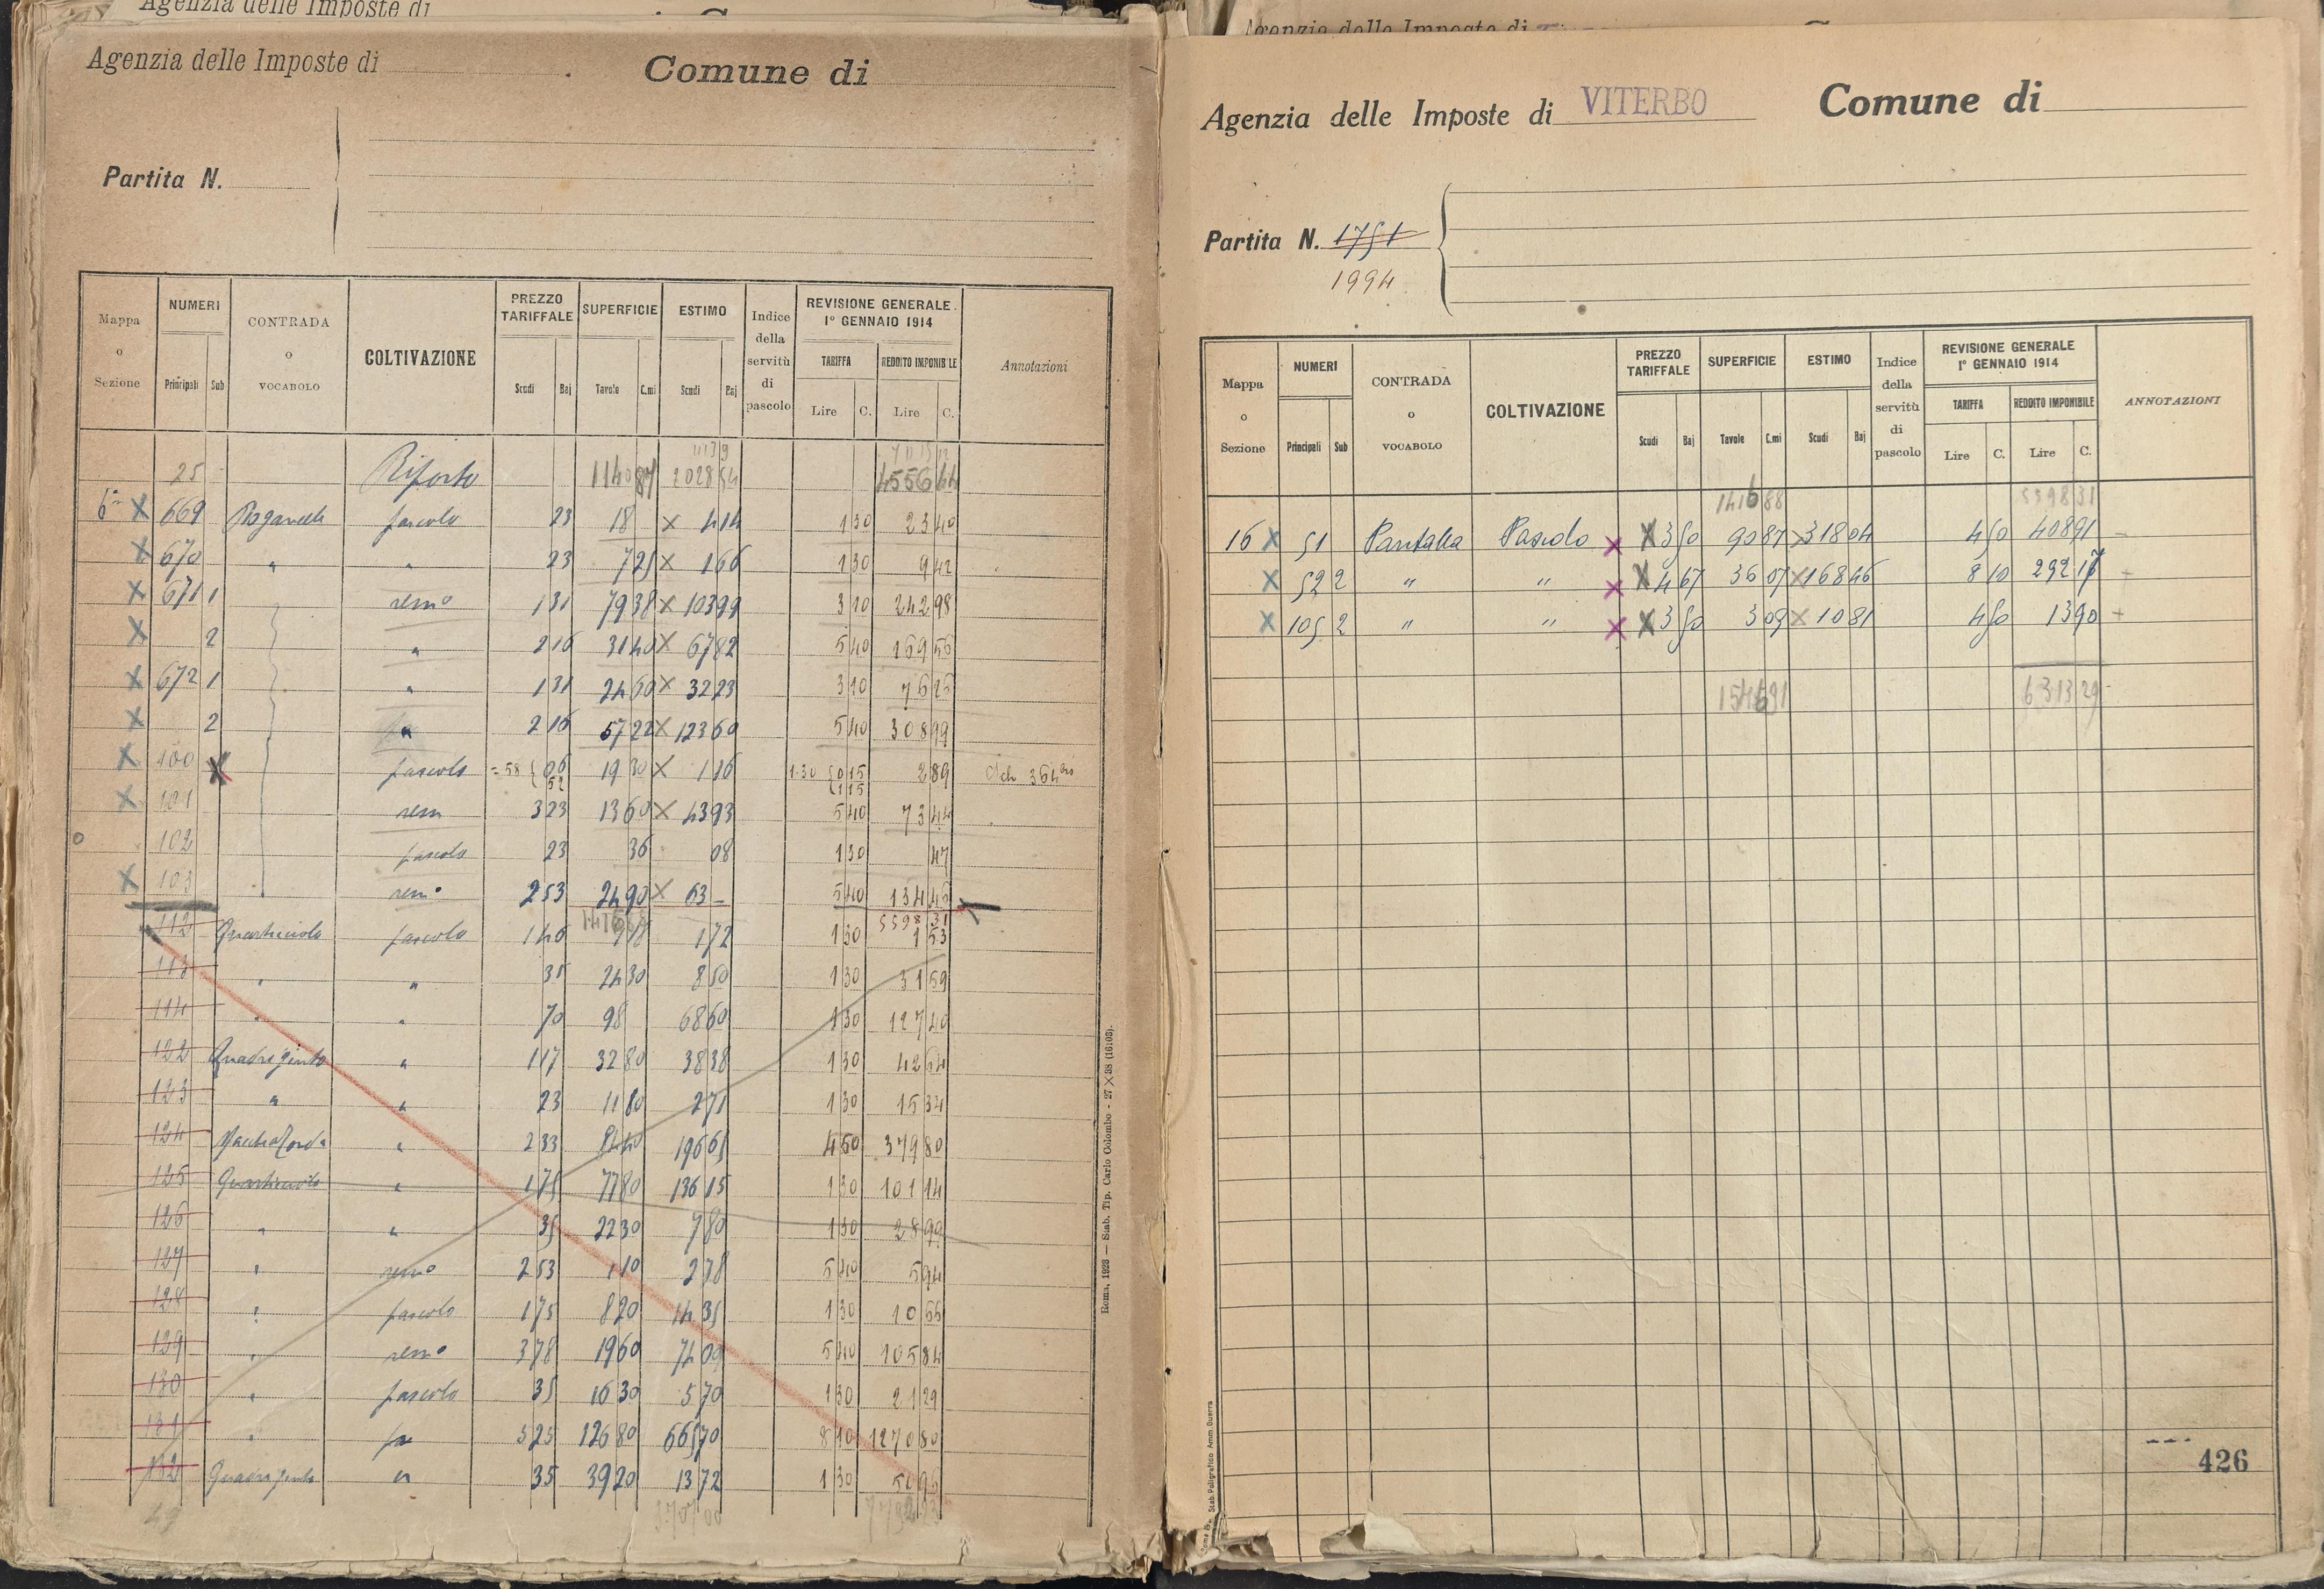 Agenzia delle Imposte di
Agenzia delle Imposte di Comune di
Partita N.
Mappa o Sezione NUMERI Principali Sub CONTRADA o VOCABOLO COLTIVAZIONE PREZZO TARIFFALE Scudi Baj SUPERFICIE Tavole C.mi ESTIMO Scudi Baj Indice della servitù di pascolo REVISIONE GENERALE 1° GENNAIO 1914 TARIFFA Lire C. REDDITO IMPONIBILE Lire C. Annotazioni
25 Riporto 11408 2028 54 4556 44
6a X 669 pascolo 23 18 X 4 14 1 30 23 40
X 670 " " 23 7 25 X 1 66 1 30 9 42
X 671 1 semo 1 31 79 38 X 103 99 3 10 242 98
X 2 " 2 16 31 40 X 67 82 5 40 169 56
X 672 1 " 1 31 24 60 X 32 23 3 10 76 26
X 2 " 2 16 57 22 X 123 60 5 40 308 99
X 100 X pascolo = 58 06 52 19 30 X 1 16 1.30 0 15 1 15 2 89
X 101 sem 3 23 13 60 X 43 93 5 40 73 44
102 pascolo 23 36 08 1 30 47
X 103 semo 2 53 24 90 X 63 – 5 40 134 46
5598 31
112 Quarticciolo pascolo 1 46 1 18 1 72 1 30 1 53
113 " " 35 24 30 8 50 1 30 31 59
114 " " 70 98 68 60 1 30 127 40
122 " 1 17 32 80 38 38 1 30 42 64
123 " " 23 11 80 2 71 1 30 15 34
124 " 2 33 84 40 196 65 4 50 379 80
125 Quarticciolo " 1 75 77 80 136 15 1 30 101 14
126 " " 35 22 30 7 80 1 30 28 99
127 " semo 2 53 1 10 2 78 5 40 5 94
128 " pascolo 1 75 8 20 14 35 1 30 10 66
129 " semo 3 78 19 60 74 09 5 40 105 84
130 " pascolo 35 16 30 5 70 1 30 21 29
131 " 5 25 126 80 665 70 8 10 1270 80
132 " 35 39 20 13 72 1 30 50 96
Roma, 1923 — Stab. Tip. Carlo Colombo - 27 X 38 (16108).
Agenzia delle Imposte di
Agenzia delle Imposte di VITERBO Comune di
Partita N. 1751
1994
Mappa o Sezione NUMERI Principali Sub CONTRADA o VOCABOLO COLTIVAZIONE PREZZO TARIFFALE Scudi Baj SUPERFICIE Tavole C.mi ESTIMO Scudi Baj Indice della servitù di pascolo REVISIONE GENERALE 1° GENNAIO 1914 TARIFFA Lire C. REDDITO IMPONIBILE Lire C. ANNOTAZIONI
1416 88 5598 31
16 X 51 Pantalla Pascolo X X 3 50 90 87 X 318 04 4 50 408 91
X 52 2 " " X X 4 67 36 07 X 168 46 8 10 292 17
X 105 2 " " X X 3 50 3 09 X 10 81 4 50 13 90
1546 91 6313 29
426